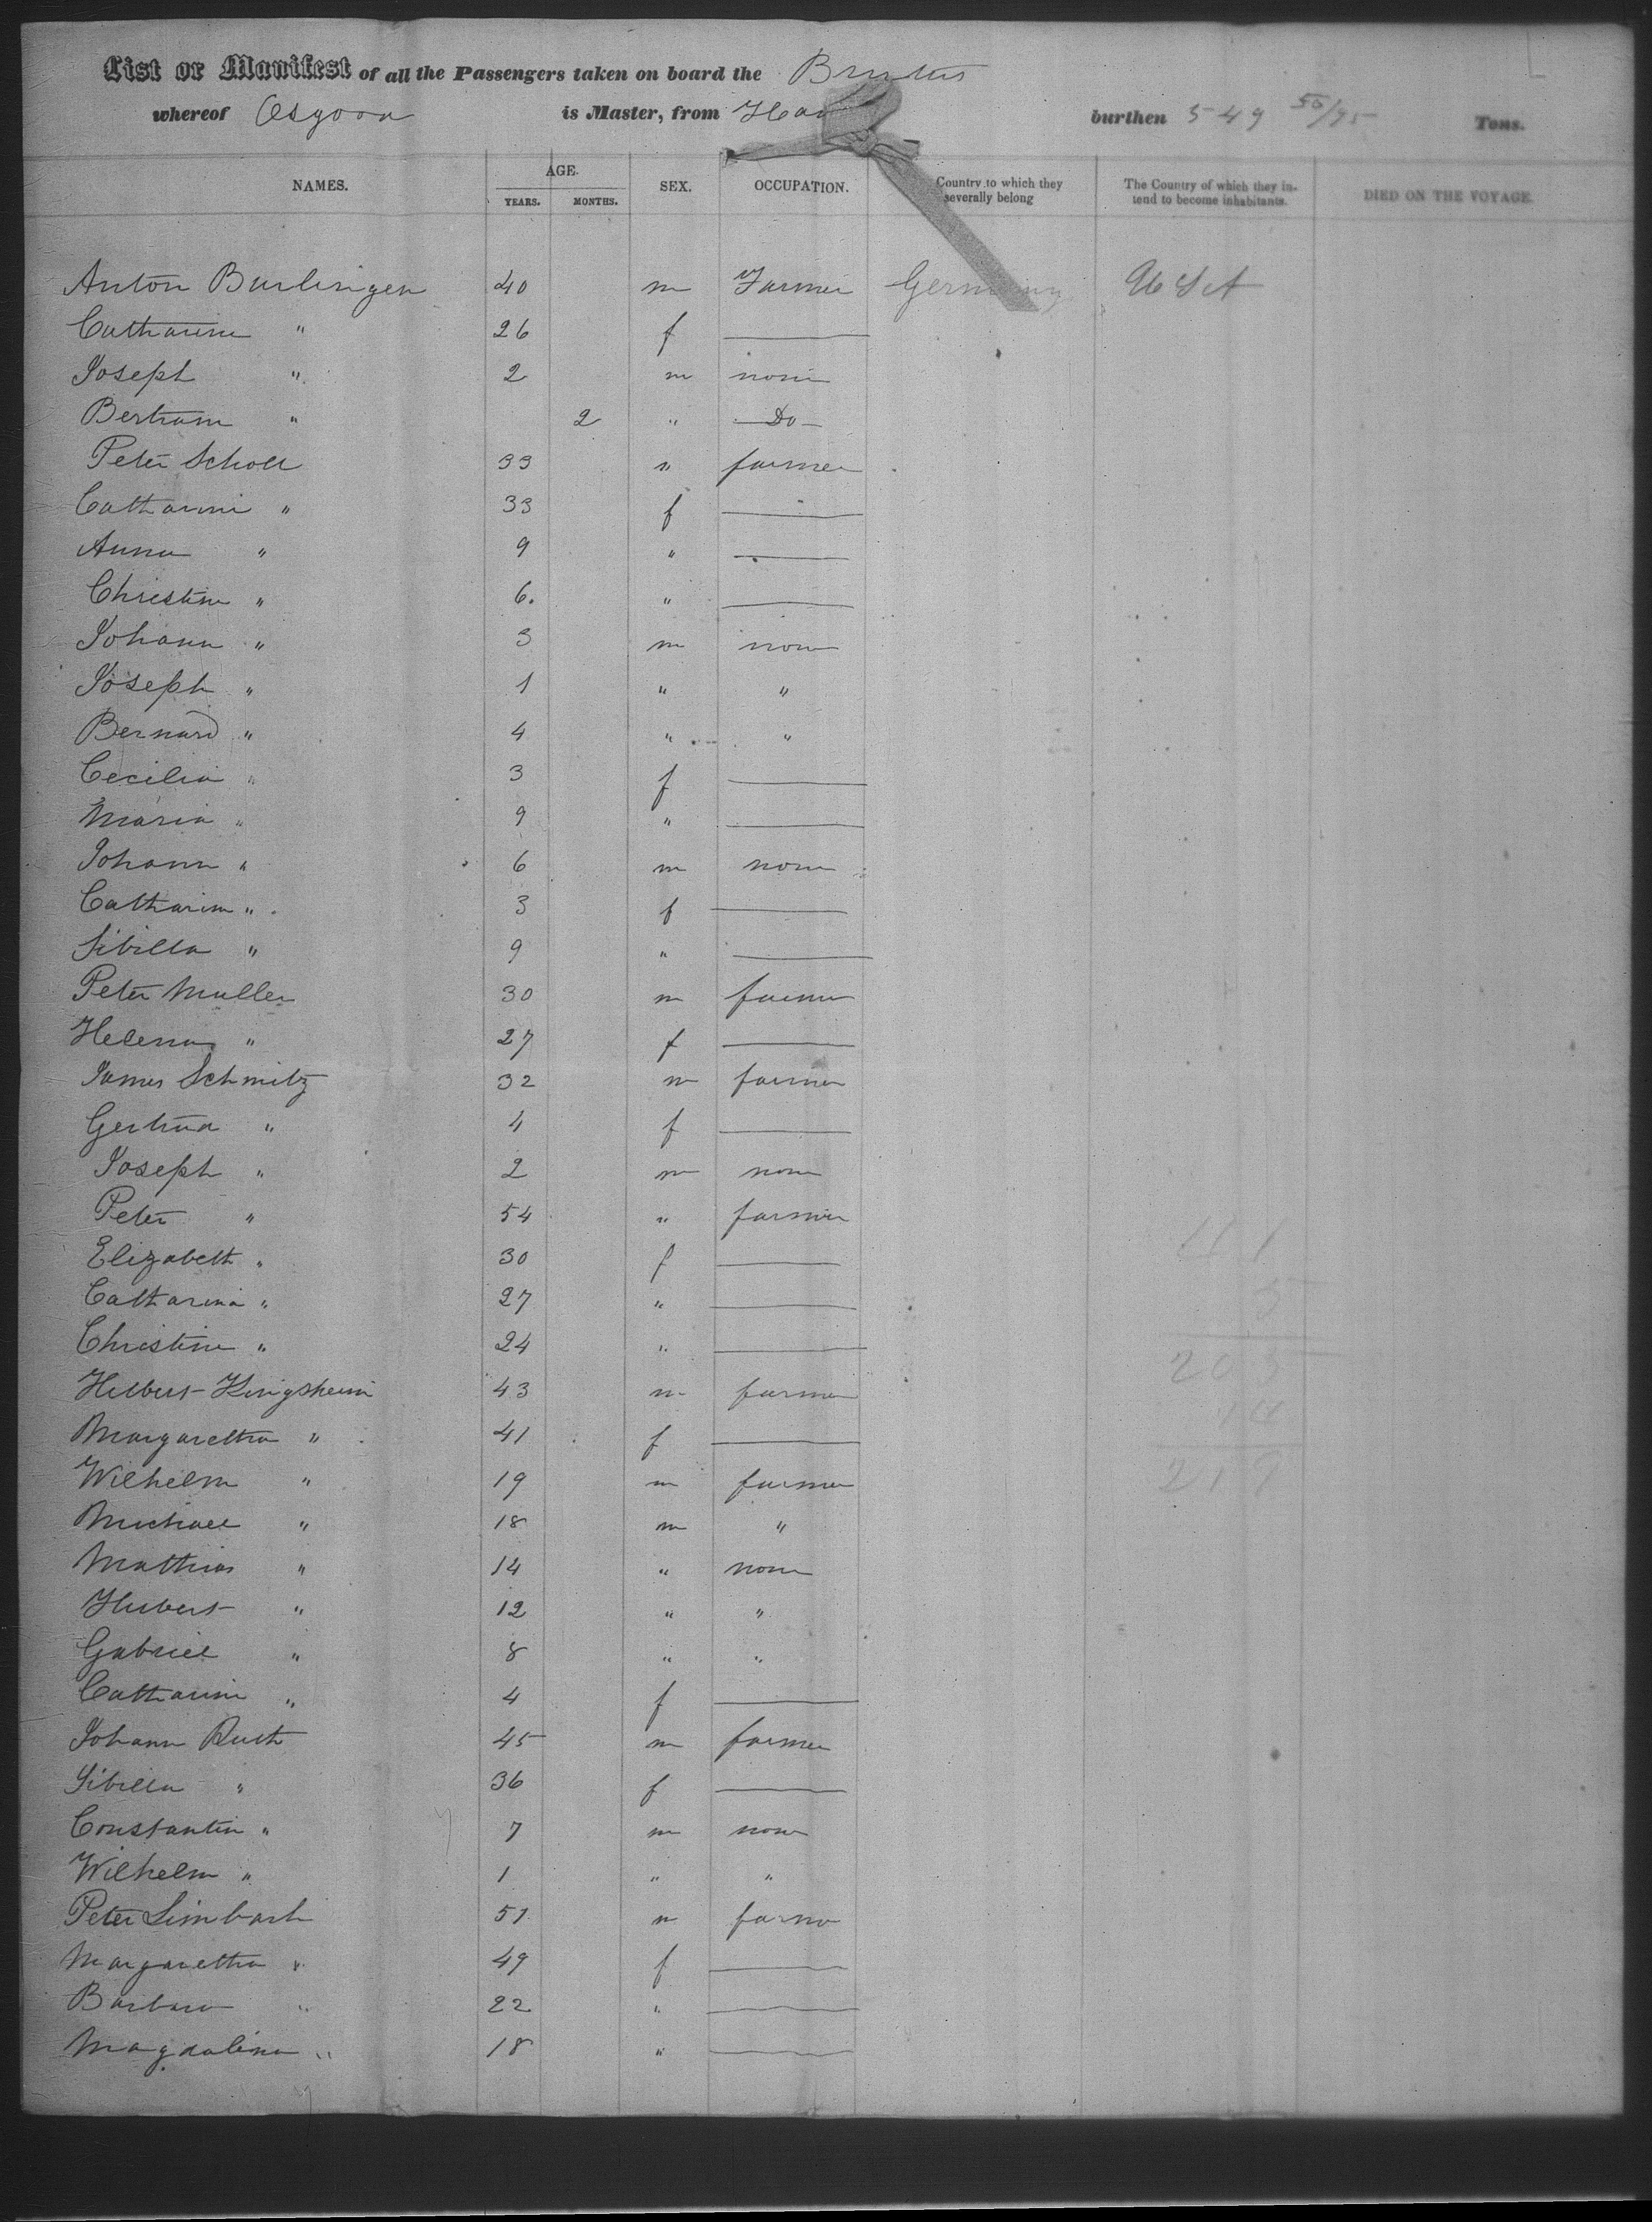 List or Manifest of all the Passengers taken on board the Brutus
whereof Osgood is Master, from burthen 549 50/95 Tons.
NAMES. AGE. YEARS. MONTHS. SEX. OCCUPATION. Country to which they severally belong The Country of which they intend to become inhabitants. DIED ON THE VOYAGE.
Anton Burlingen 40 m Farmer Germany U S A
Catharine " 26 f —
Joseph " 2 m none
Bertram " 2 " Do
Peter Scholl 33 " farmer
Catharine " 33 f —
Anna " 9 " —
Christine " 6. " —
Johann " 3 m none
Joseph " 1 " "
Bernard " 4 " "
Cecilia " 3 f —
Maria " 9 " —
Johann " 6 m none
Catharine " 3 f —
Sibilla " 9 " —
Peter Muller 30 m farmer
Helena " 27 f —
James Schmitz 32 m farmer
Gertrud " 4 f —
Joseph " 2 m none
Peter " 54 " farmer
Elizabeth " 30 f —
Catharina " 27 " —
Christine " 24 " —
Hubert Kingsheim 43 m farmer
Margaretha " 41 f —
Wilhelm " 19 m farmer
Michael " 18 m "
Mathias " 14 " none
Hubert " 12 " "
Gabriel " 8 " "
Catharine " 4 f —
Johann Ruth 45 m farmer
Sibilla " 36 f —
Constantin " 7 m none
Wilhelm " 1 " "
Peter Limbach 51 m farmer
Margaretha " 49 f —
Barbara " 22 " —
Magdalina " 18 " —